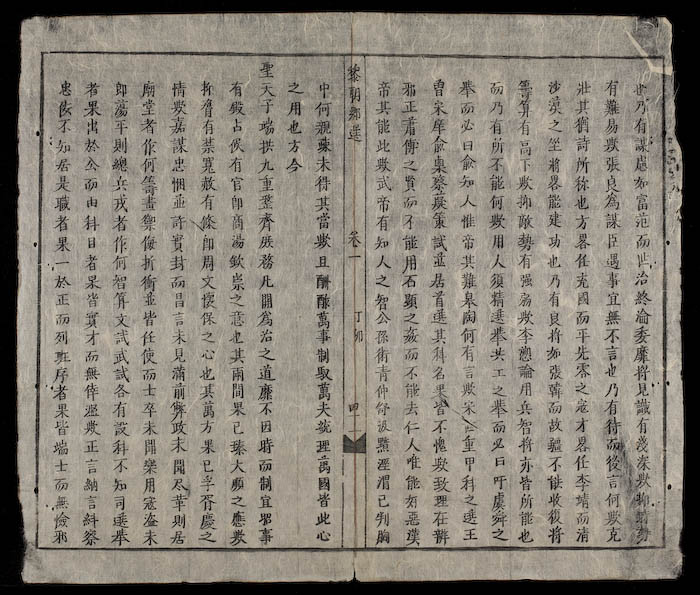 也乃有謀慮如富范而此治終渝委靡將見識有淺深歟抑時勢
有難易歟張良為謀臣遇事宜無不言也乃有待而後言何歟克
壯其猶詩所稱也方畧任充國而平先零之寇才畧任李靖而清
沙漠之塵將畧能建功也乃有良將如張韓而故疆不能收復將
籌算有高下歟抑敵勢有强弱歟李愬論用兵智將亦皆所能也
而乃有所不能何歟用人須精選舉共工之舉而必曰吁虞舜之
舉而必曰俞知人惟帝其難皋陶何有言歟宋世重甲科之選王
曾宋庠策試並居首選其科名果皆不愧歟致理在辨
邪正蕭傅之賢而不能用石顯之姦而不能去仁人唯能好惡漢
帝其能此歟武帝有知人之智公孫衛青仲舒汲黯涇渭已判胸
黎朝鄉選 卷一 丁卯 四二
中何親疎未得其當歟且酬酢萬事制馭萬夫統理萬國皆此心
之用也方今
聖天子端拱九重整齊庶務凡關為治之道靡不因時而制宜事
有殿占候有官即商湯欽崇之意也其兩間果已臻大順之應歟
有禁寬赦有條即周文懷保之心也其萬方果已孚胥慶之
情歟嘉謀忠悃並許實封而昌言未見滿前弊政未聞盡革則居
廟堂者作何籌畫禦侮折衝並皆任使而士卒未聞樂用寇盜未
即蕩平則總兵戎者作何智算文試武試各有設科不知司選舉
者果出於公而由科目者果皆實才而無倖進歟正言納言糾察
忠佞不知居是職者果一於正而列班序者果皆端士而無憸邪